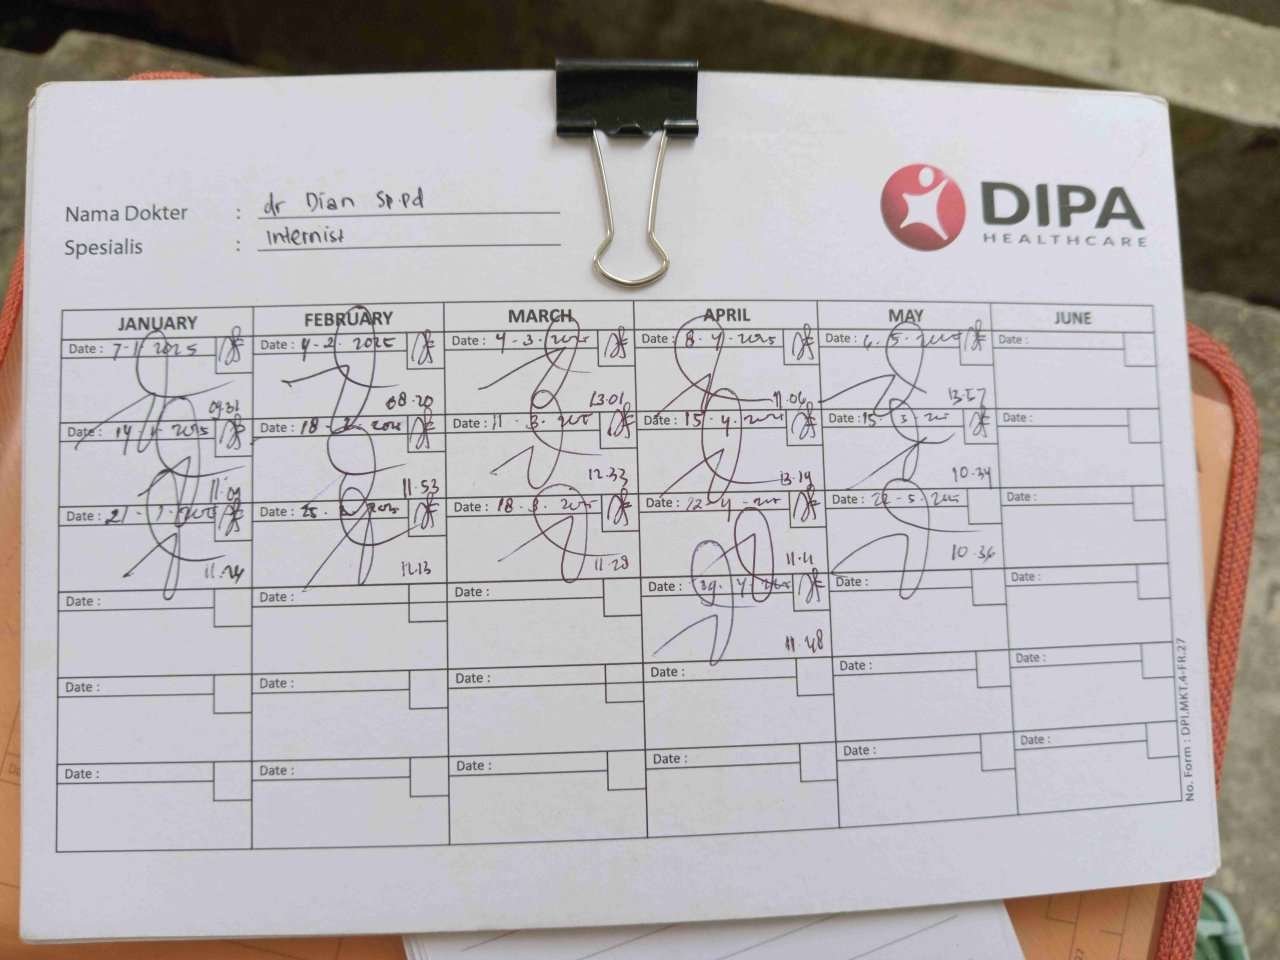 Nama Dokter : dr Dian Sp.pd
Spesialis : Internist
DIPA
HEALTHCARE
JANUARY FEBRUARY MARCH APRIL MAY JUNE
Date : 7-1 2025 Date : 4-2-2025 Date : 4-3-2025 Date : 8-4-2025 Date : 6-5-2025 Date :
08.20 13.01 11.06 13.57
Date : 14 2025 Date : 18-2-2025 Date : 11-3-2025 Date : 15-4-2025 Date : 15 Date :
11.53 12.33 13.19 10.34
Date : 21 2025 Date : 25 2025 Date : 18-3-2025 Date : 22-4 Date : 22-5-2025 Date :
11.24 12.13 11.29 10.36
Date : Date : Date : Date : 29-4-2025 Date : Date :
11.48
Date : Date : Date : Date : Date : Date :
Date : Date : Date : Date : Date : Date :
No. Form : DPI.MKT.4-FR.27